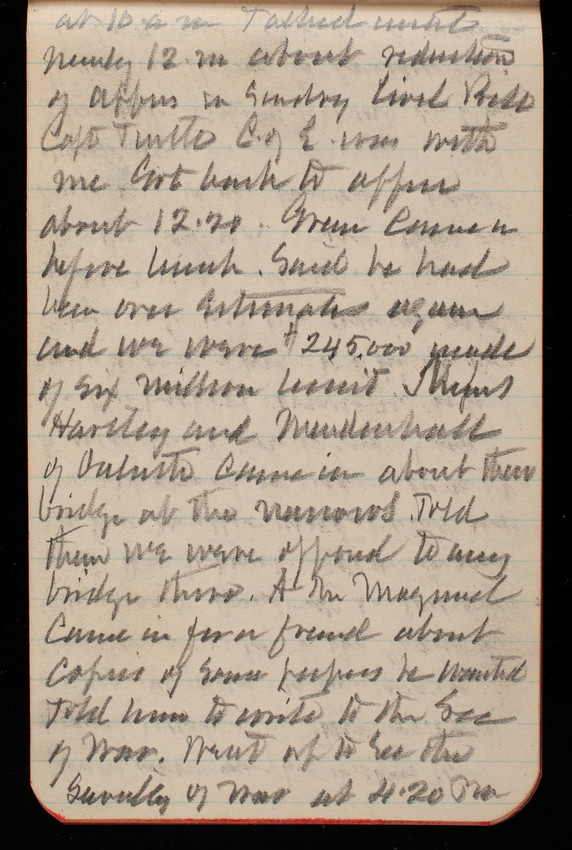 at 10 a m Talked until
nearly 12 m about reduction
of appns in Sundry Civil Bill
Capt Turtle C. of E. was with
me Got back to office
about 12.20. Green came in
before lunch. Said he had
been over Estimates again
and we were $245,000 inside
of six million limit.
Hartley and Mendenhall
of Duluth came in about their
bridge at the narrows. Told
them we were opposed to any
bridge there. A Mr
came in for a friend about
copies of some papers he wanted
Told him to write to the Sec
of War. Went up to see the
of War at 4.20 Pm